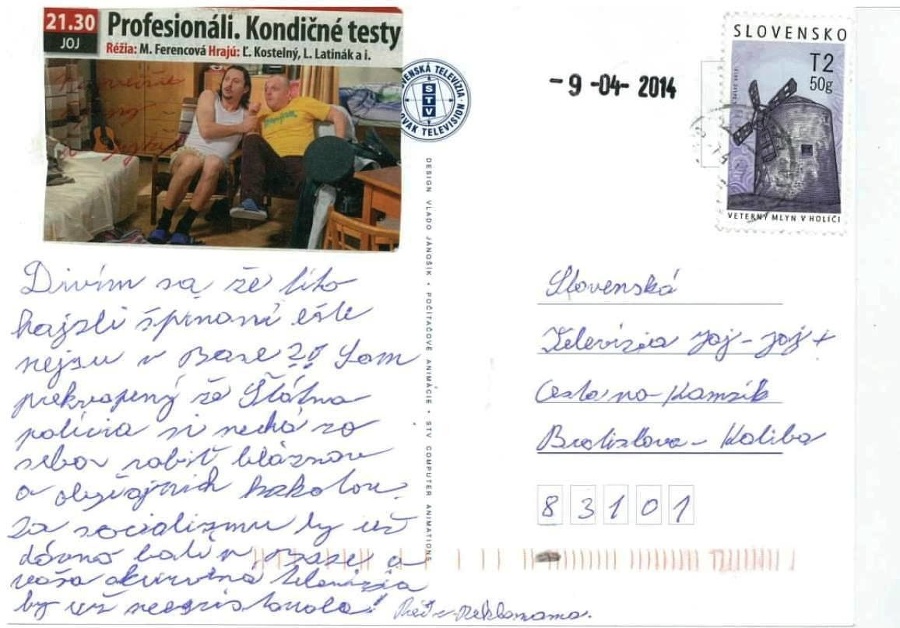 21.30
JOJ
Profesionáli. Kondičné testy
Réžia: M. Ferencová Hrajú: Ľ. Kostelný, L. Latinák a i.
SLOVENSKÁ TELEVÍZIA
STV
SLOVAK TELEVISION
-9 -04- 2014
SLOVENSKO
T2
50g
VETERNÝ MLYN V HOLÍČI
DESIGN VLADO JANOŠÍK • POČÍTAČOVÉ ANIMÁCIE • STV COMPUTER ANIMATIONS
Divím sa že títo
hajzli špinaví ešte
nejsu v Base ?! Som
prekvapený že Štátna
polícia si nechá zo
sebou robiť bláznov
a obyčajných kokotou.
Za socializmu by už
dávno boli v Base a
vaša skurvená televízia
by už neexistovala!
Slovenská
Televízia Joj - Joj +
Cesta na Kamzík
Bratislava - Koliba
83101